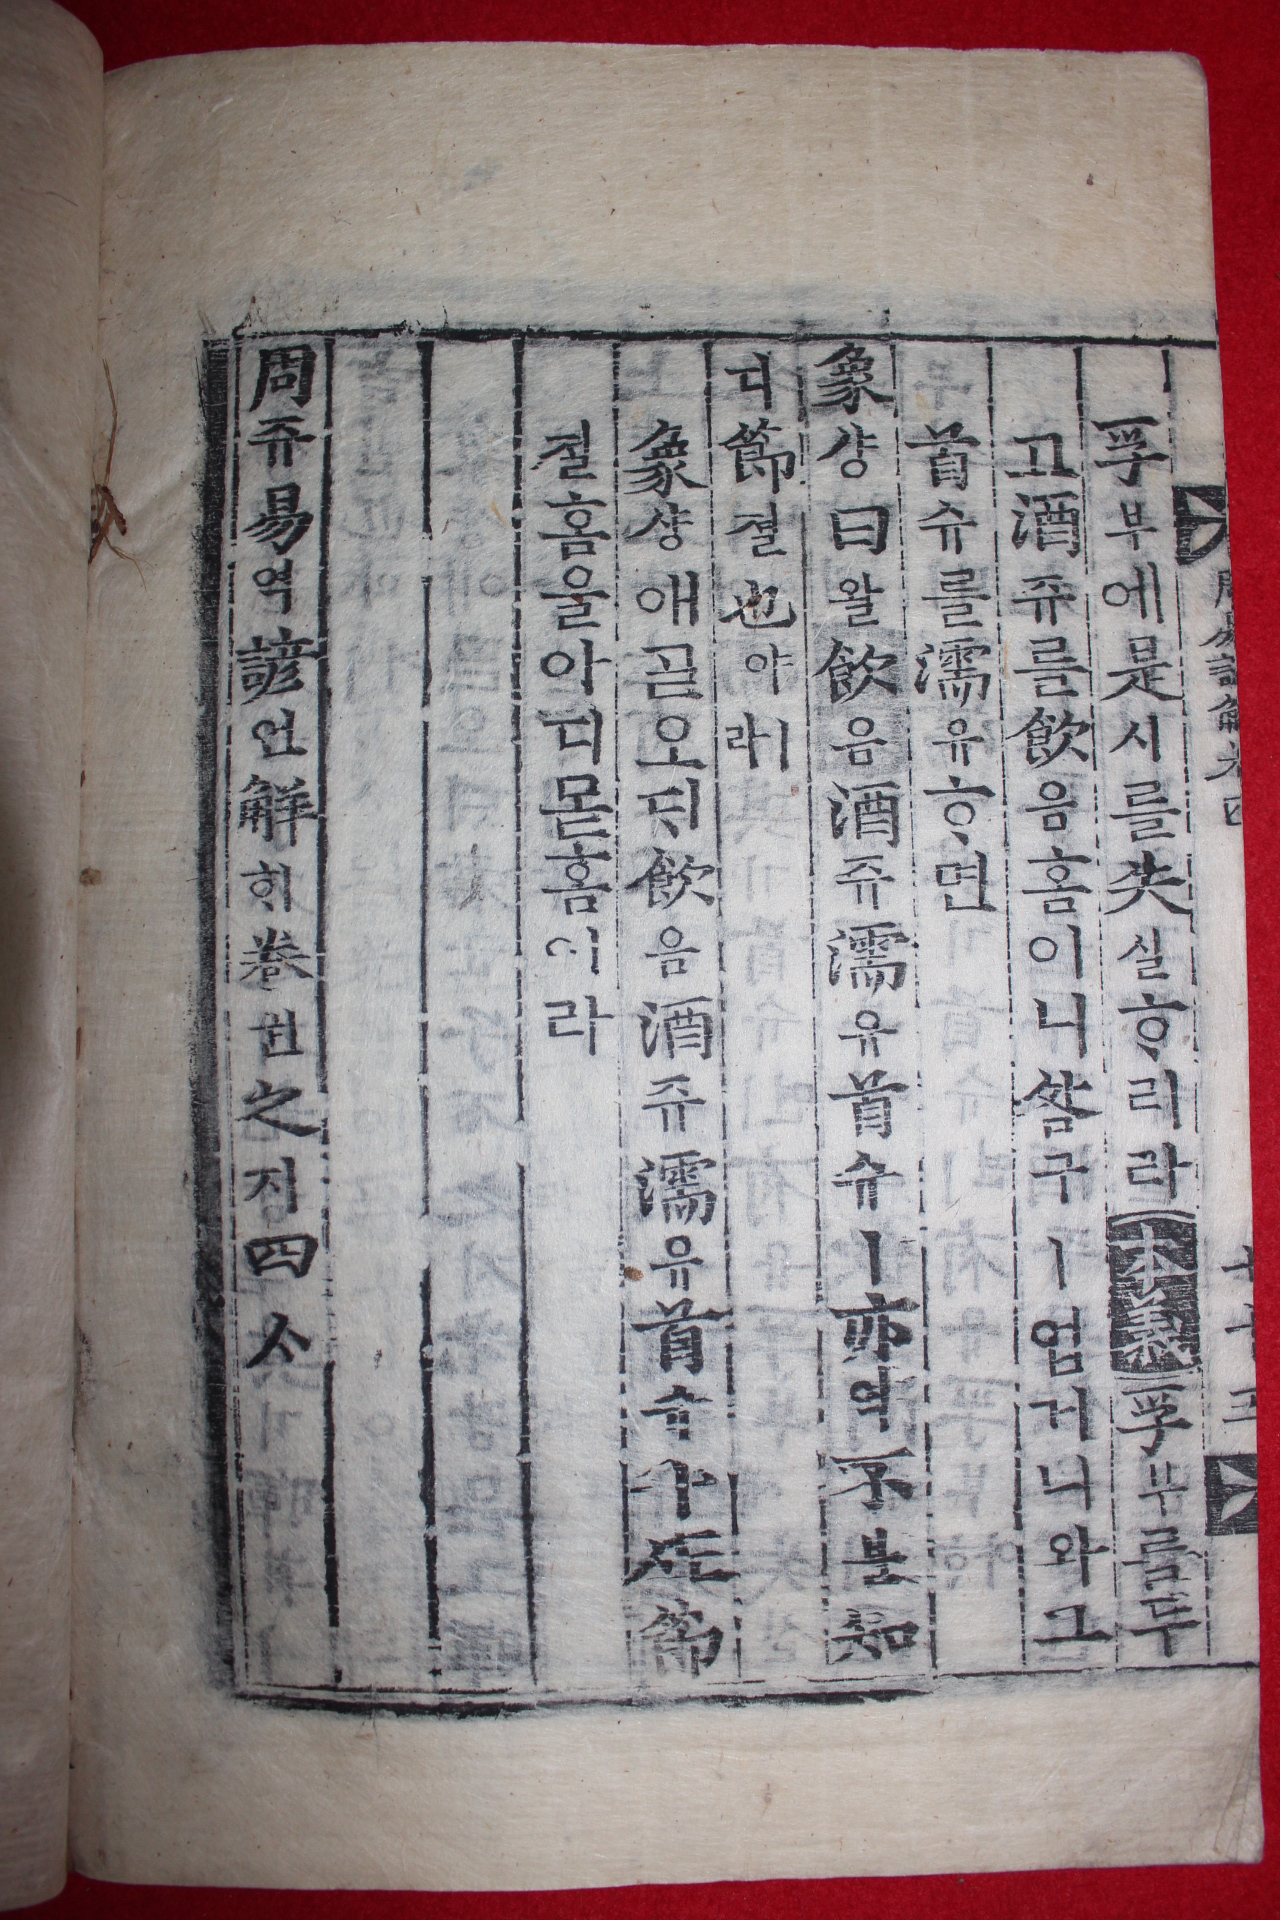 孚부에是시를失실ᄒᆞ리라(本義)孚부를두
고酒쥬를飮음홈이니咎구ㅣ업거니와그
首슈를濡유ᄒᆞ면
象샹曰왈飮음酒쥬濡유首슈ㅣ亦역不불知
디節졀也야ㅣ라
象샹애ᄀᆞᆯ오ᄃᆡ飮음酒쥬濡유首슈ㅣ
節
졀홈을아디몯홈이라
周쥬易역諺언解ᄒᆡ卷권之지四ᄉᆞ